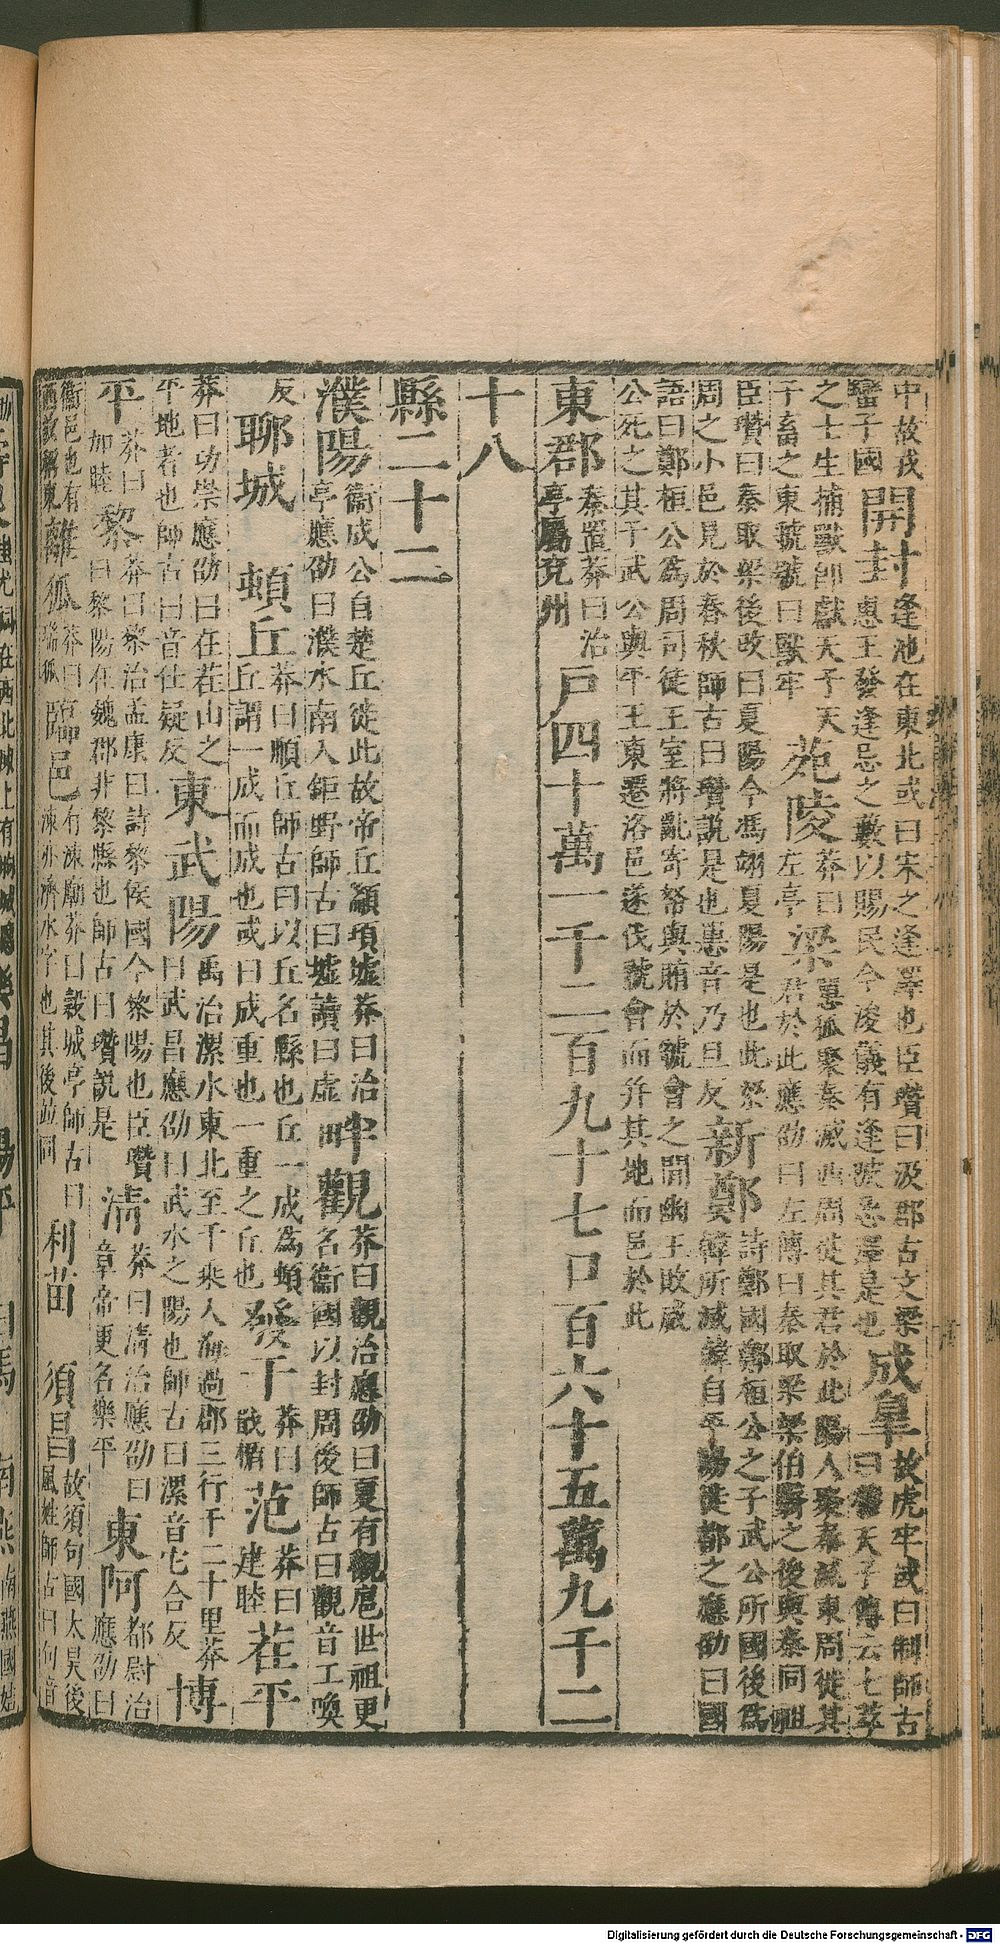 中故戎蠻子國開封逢池在東北或曰宋之逢澤也臣瓚曰汲郡古文梁惠王發逢忌之藪以賜民今浚儀有逢陂忌澤是也成皋故虎牢或曰制師古曰穆天子傳云七萃
之士生捕獸即獻天子天子畜之東虢號曰獸牢苑陵莽曰左亭梁狐聚秦滅西周徙其君於此陽人聚秦滅東周徙其君於此應劭曰左傳曰秦取梁梁伯翳之後與秦同祖
臣瓚曰秦取梁後改曰夏陽今馮翊夏陽是也此梁周之小邑見於春秋師古曰瓚說是也音乃旦反新鄭詩鄭國鄭桓公之子武公所國後爲韓所滅韓自平陽徙都之應劭曰國
語曰鄭桓公爲周司徒王室將亂寄帑與賄於虢會之間幽王敗威公死之其子武公與平王東遷洛邑遂伐虢會而幷其地而邑於此
東郡秦置莽曰治亭屬兗州戶四十萬一千二百九十七口百六十五萬九千二
十八
縣二十二
濮陽衞成公自楚丘徙此故帝丘顓頊墟莽曰治亭應劭曰濮水南入鉅野師古曰墟讀曰虛畔觀莽曰觀治應劭曰夏有觀扈世祖更名衞國以封周後師古曰觀音工喚
反聊城頓丘莽曰順丘師古曰以丘名縣也丘一成爲頓丘謂一成而成也或曰成重也一重之丘也發干莽曰戢楯范莽曰建睦茬平
莽曰功崇應劭曰在茬山之平地者也師古曰音仕疑反東武陽禹治漯水東北至千乘入海過郡三行千二十里莽曰武昌應劭曰武水之陽也師古曰漯音它合反博
平莽曰加睦黎莽曰黎治孟康曰詩黎侯國今黎陽也臣瓚曰黎陽在魏郡非黎縣也師古曰瓚說是清莽曰清治應劭曰章帝更名樂平東阿都尉治應劭曰
衞邑也有西故稱東離狐莽曰瑞狐臨邑有泲廟莽曰穀城亭師古曰泲亦濟水字也其後並同利苗須昌故須句國太昊後風姓師古曰句音
Digitalisierung gefördert durch die Deutsche Forschungsgemeinschaft - DFG